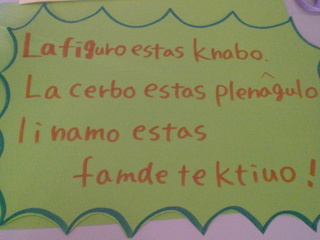 La figuro estas knabo.
La cerbo estas plenâgulo
li namo estas
famdetektiuo!